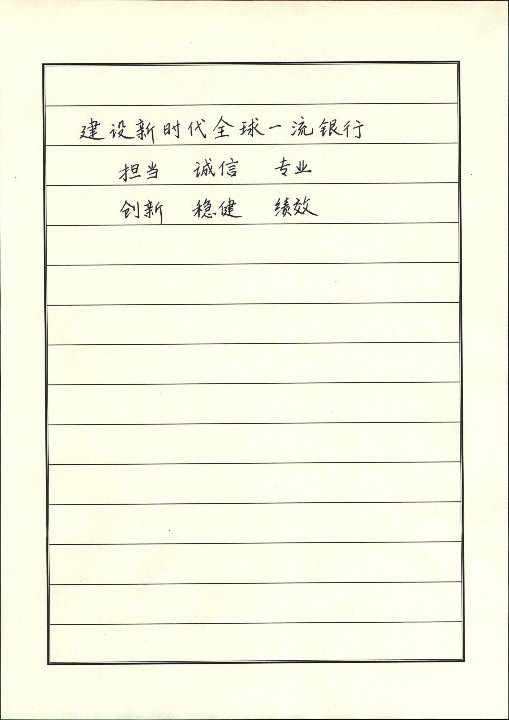 建设新时代全球一流银行
担当 诚信 专业
创新 稳健 绩效